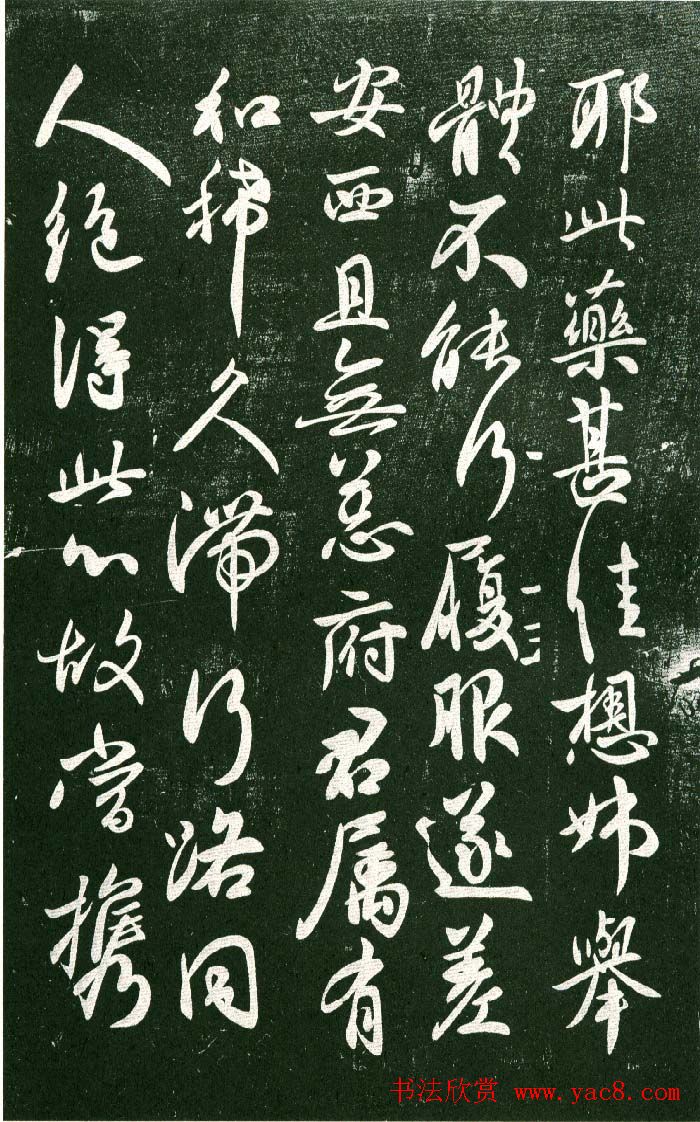 耶此藥甚佳想姊舉
體不能行履眼遂差
安西且無恙府君属有
和久滞行路同
人絶得此故當攜
书法欣赏 www.yac8.com